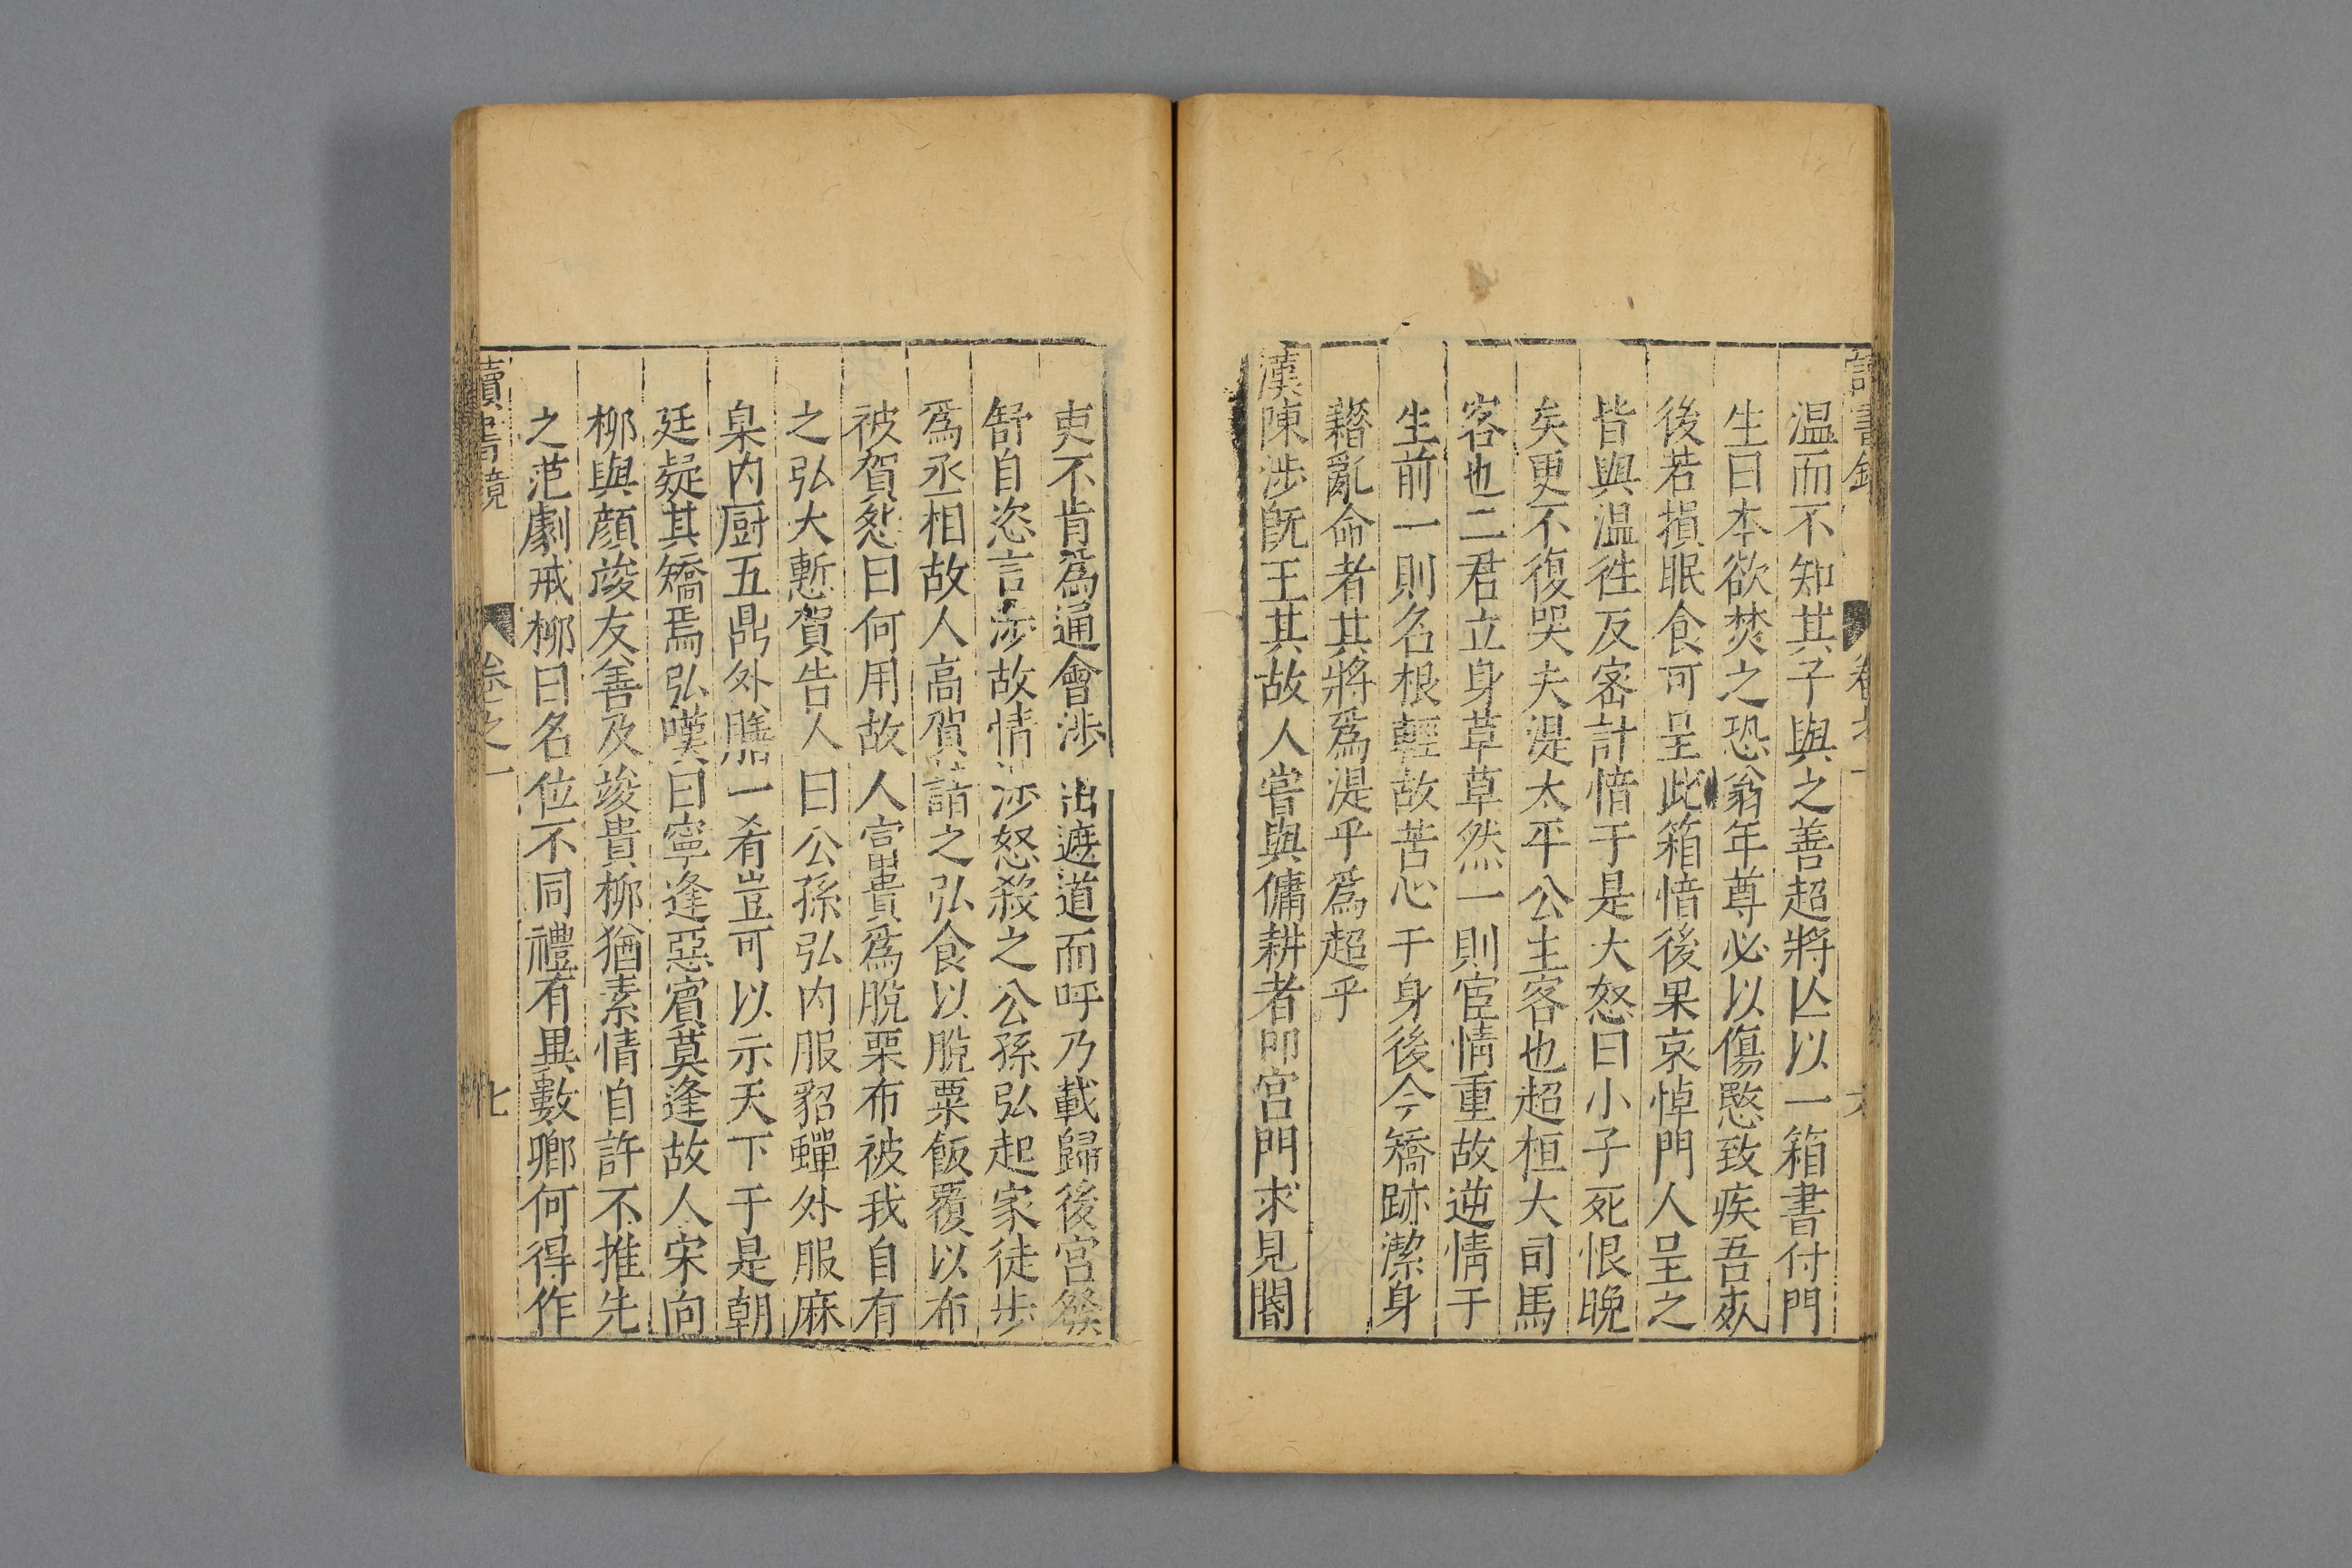 溫而不知其子與之善超將亾以一箱書付門
生曰本欲焚之恐翁年尊必以傷愍致疾吾死
後若損眠食可呈此箱愔後果哀悼門人呈之
皆與溫徃反宻計愔于是大怒曰小子死恨晚
矣更不復哭夫湜太平公主客也超桓大司馬
客也二君立身草草然一則宦情重故逆情于
生前一則名根輕故苦心于身後今矯跡潔身
藉亂命者其將爲湜乎爲超乎
漢陳涉旣王其故人嘗與傭耕者叩宮門求見閽
吏不肯爲通會涉出遮道而呼乃載歸後宮發
舒自恣言涉故情涉怒殺之公孫弘起家徒步
爲丞相故人高賀詣之弘食以脫粟飯覆以布
被賀怨曰何用故人富貴爲脫粟布被我自有
之弘大慙賀告人曰公孫弘內服貂蟬外服麻
枲內厨五鼎外膳一肴豈可以示天下于是朝
廷疑其矯焉弘嘆曰寧逢惡賓莫逢故人宋向
柳與顏竣友善及竣貴柳猶素情自許不推先
之范劇戒柳曰名位不同禮有異數卿何得作
讀書鏡 卷之一 七